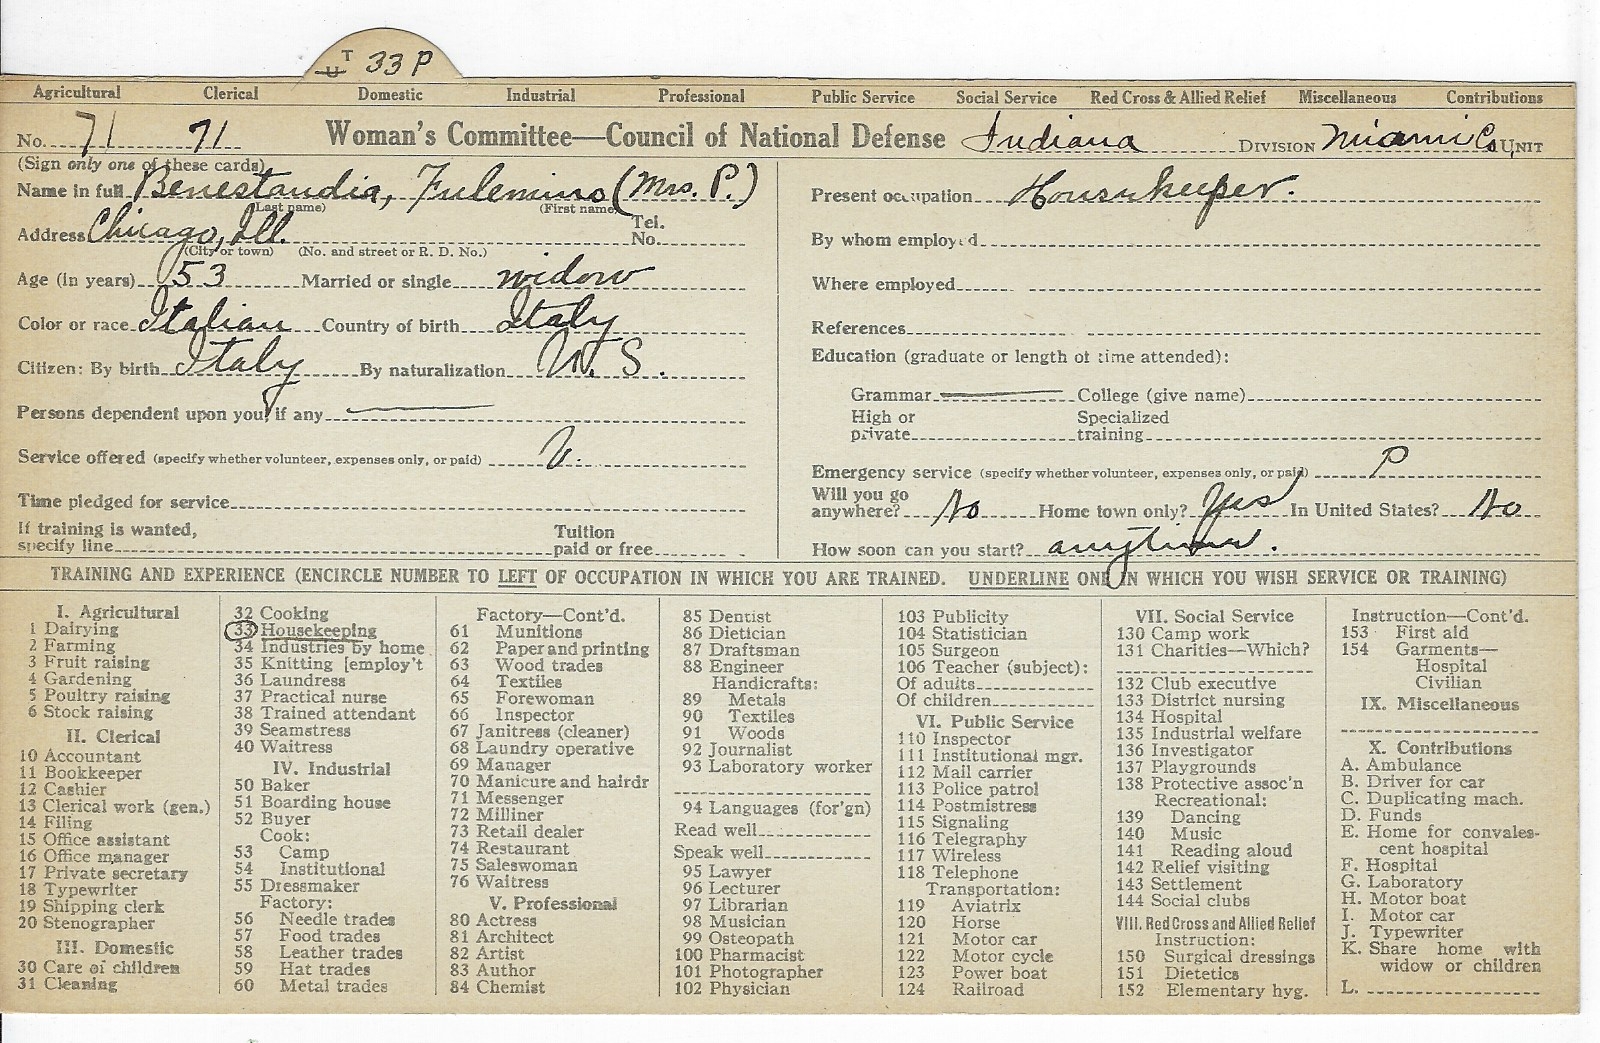 T
U 33 P
Agricultural Clerical Domestic Industrial Professional Public Service Social Service Red Cross & Allied Relief Miscellaneous Contributions
No. 71 71 Woman's Committee—Council of National Defense Indiana DIVISION Miami Co. UNIT
(Sign only one of these cards)
Name in full Benestandia, (Mrs. P.)
(Last name) (First name)
Address Chicago, Ill. Tel. No.
(City or town) (No. and street or R. D. No.)
Age (in years) 53 Married or single widow
Color or race Italian Country of birth Italy
Citizen: By birth Italy By naturalization U. S.
Persons dependent upon you, if any —
Service offered (specify whether volunteer, expenses only, or paid) V.
Time pledged for service
If training is wanted,
specify line Tuition
paid or free
Present occupation Housekeeper.
By whom employed
Where employed
References
Education (graduate or length of time attended):
Grammar — College (give name)
High or
private Specialized
training
Emergency service (specify whether volunteer, expenses only, or paid) P
Will you go
anywhere? No Home town only? Yes In United States? No
How soon can you start? anytime.
TRAINING AND EXPERIENCE (ENCIRCLE NUMBER TO LEFT OF OCCUPATION IN WHICH YOU ARE TRAINED. UNDERLINE ONE IN WHICH YOU WISH SERVICE OR TRAINING)
I. Agricultural
1 Dairying
2 Farming
3 Fruit raising
4 Gardening
5 Poultry raising
6 Stock raising
II. Clerical
10 Accountant
11 Bookkeeper
12 Cashier
13 Clerical work (gen.)
14 Filing
15 Office assistant
16 Office manager
17 Private secretary
18 Typewriter
19 Shipping clerk
20 Stenographer
III. Domestic
30 Care of children
31 Cleaning
32 Cooking
33 Housekeeping
34 Industries by home
35 Knitting [employ't
36 Laundress
37 Practical nurse
38 Trained attendant
39 Seamstress
40 Waitress
IV. Industrial
50 Baker
51 Boarding house
52 Buyer
Cook:
53 Camp
54 Institutional
55 Dressmaker
Factory:
56 Needle trades
57 Food trades
58 Leather trades
59 Hat trades
60 Metal trades
Factory—Cont'd.
61 Munitions
62 Paper and printing
63 Wood trades
64 Textiles
65 Forewoman
66 Inspector
67 Janitress (cleaner)
68 Laundry operative
69 Manager
70 Manicure and hairdr
71 Messenger
72 Milliner
73 Retail dealer
74 Restaurant
75 Saleswoman
76 Waitress
V. Professional
80 Actress
81 Architect
82 Artist
83 Author
84 Chemist
85 Dentist
86 Dietician
87 Draftsman
88 Engineer
Handicrafts:
89 Metals
90 Textiles
91 Woods
92 Journalist
93 Laboratory worker
94 Languages (for'gn)
Read well
Speak well
95 Lawyer
96 Lecturer
97 Librarian
98 Musician
99 Osteopath
100 Pharmacist
101 Photographer
102 Physician
103 Publicity
104 Statistician
105 Surgeon
106 Teacher (subject):
Of adults
Of children
VI. Public Service
110 Inspector
111 Institutional mgr.
112 Mail carrier
113 Police patrol
114 Postmistress
115 Signaling
116 Telegraphy
117 Wireless
118 Telephone
Transportation:
119 Aviatrix
120 Horse
121 Motor car
122 Motor cycle
123 Power boat
124 Railroad
VII. Social Service
130 Camp work
131 Charities—Which?
132 Club executive
133 District nursing
134 Hospital
135 Industrial welfare
136 Investigator
137 Playgrounds
138 Protective assoc'n
Recreational:
139 Dancing
140 Music
141 Reading aloud
142 Relief visiting
143 Settlement
144 Social clubs
VIII. Red Cross and Allied Relief
Instruction:
150 Surgical dressings
151 Dietetics
152 Elementary hyg.
Instruction—Cont'd.
153 First aid
154 Garments—
Hospital
Civilian
IX. Miscellaneous
X. Contributions
A. Ambulance
B. Driver for car
C. Duplicating mach.
D. Funds
E. Home for convales-
cent hospital
F. Hospital
G. Laboratory
H. Motor boat
I. Motor car
J. Typewriter
K. Share home with
widow or children
L.